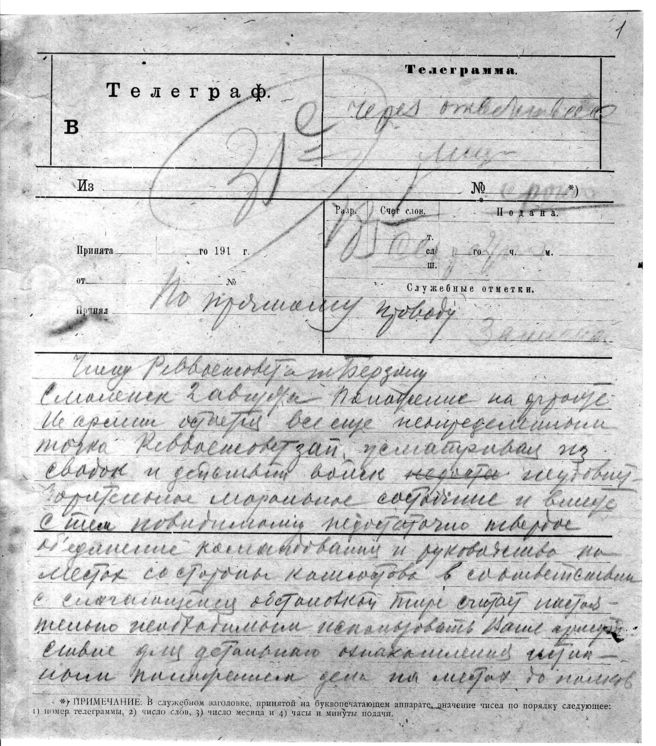 1
Телеграф.
Телеграмма.
В
31
Через
Из
№ *)
срочно
Разр.
Счет слов.
Подана.
Принята го 191 г.
т.
сл го ч. м.
ш.
от №
Служебные отметки.
Принял
По прямому проводу
Записка
Члену Реввоенсовета т Берзину
Смоленск 2 августа Положение на фронте
армии остается все еще неопределенным
точка Реввоенсоветзап, усматривая из
сводок и действий войск неудовлет-
ворительное моральное состояние и вместе
с тем повидимому недостаточно твердое
объединение командования и руководство на
местах со стороны комсостава в соответствии
с слагающейся обстановкой тире считает настоя-
тельно необходимым использовать Ваше присут-
ствие для детального ознакомления истин-
ным положением дел на местах до полков
*) ПРИМЕЧАНИЕ: В служебном заголовке, принятой на буквопечатающем аппарате, значение чисел по порядку следующее:
1) номер телеграммы, 2) число слов, 3) число месяца и 4) часы и минуты подачи.